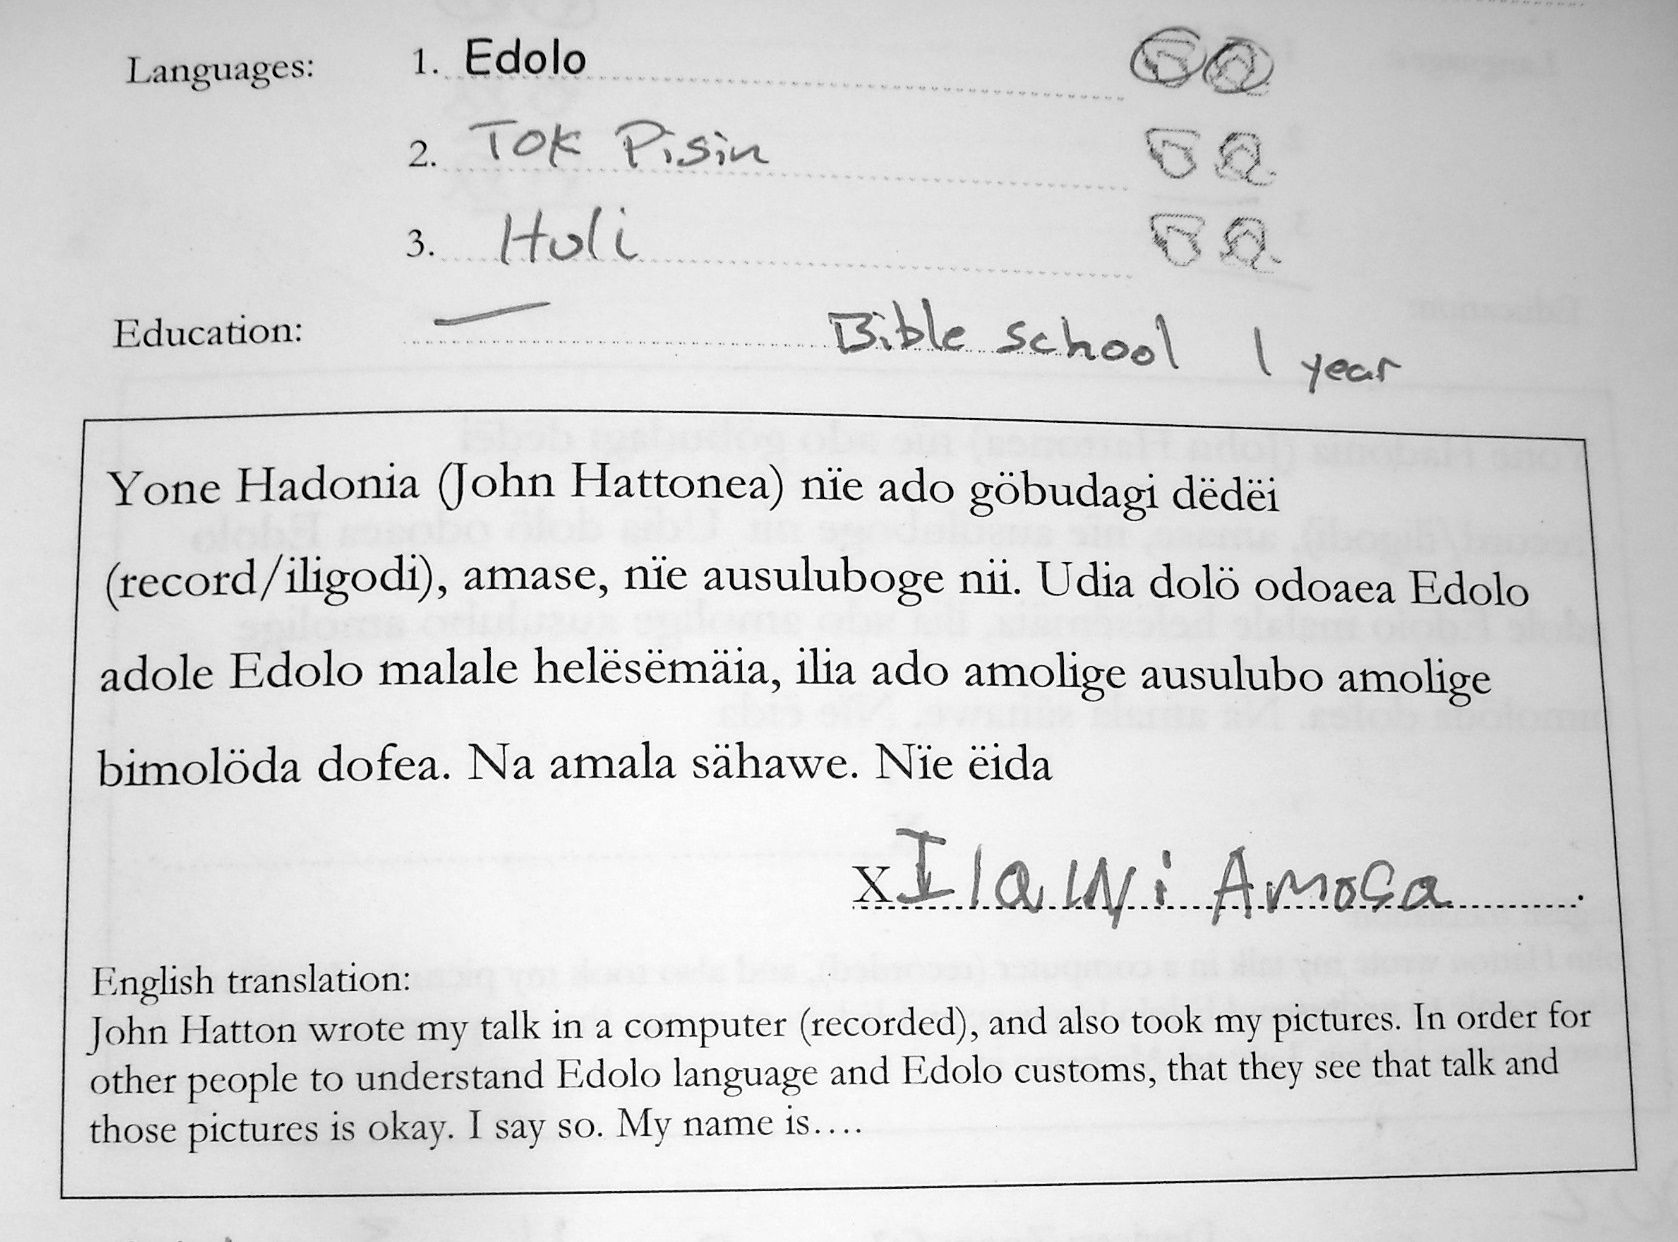 Languages: 1. Edolo
2. Tok Pisin
3. Huli
Education: — Bible school 1 year
Yone Hadonia (John Hattonea) nïe ado göbudagi dëdëi
(record/iligodi), amase, nïe ausuluboge nii. Udia dolö odoaea Edolo
adole Edolo malale helësëmäia, ilia ado amolige ausulubo amolige
bimolöda dofea. Na amala sähawe. Nïe ëida
X Ilawi Amosa
English translation:
John Hatton wrote my talk in a computer (recorded), and also took my pictures. In order for
other people to understand Edolo language and Edolo customs, that they see that talk and
those pictures is okay. I say so. My name is….